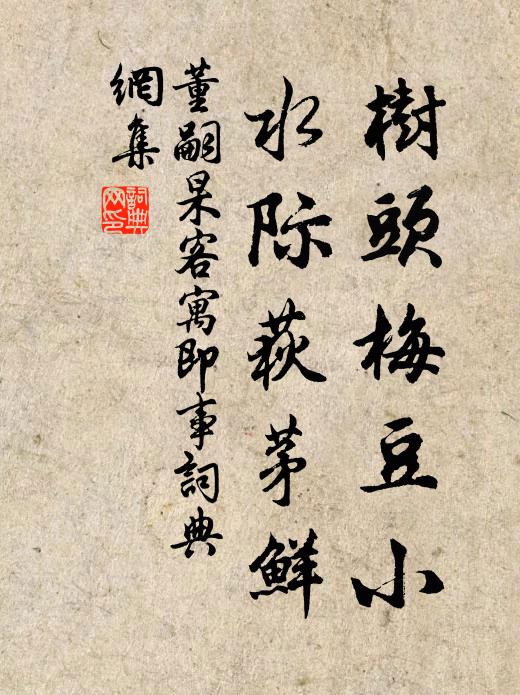 樹頭梅豆小
水际荻茅鮮
董嗣杲客寓即事詞典
網集
詞典網印